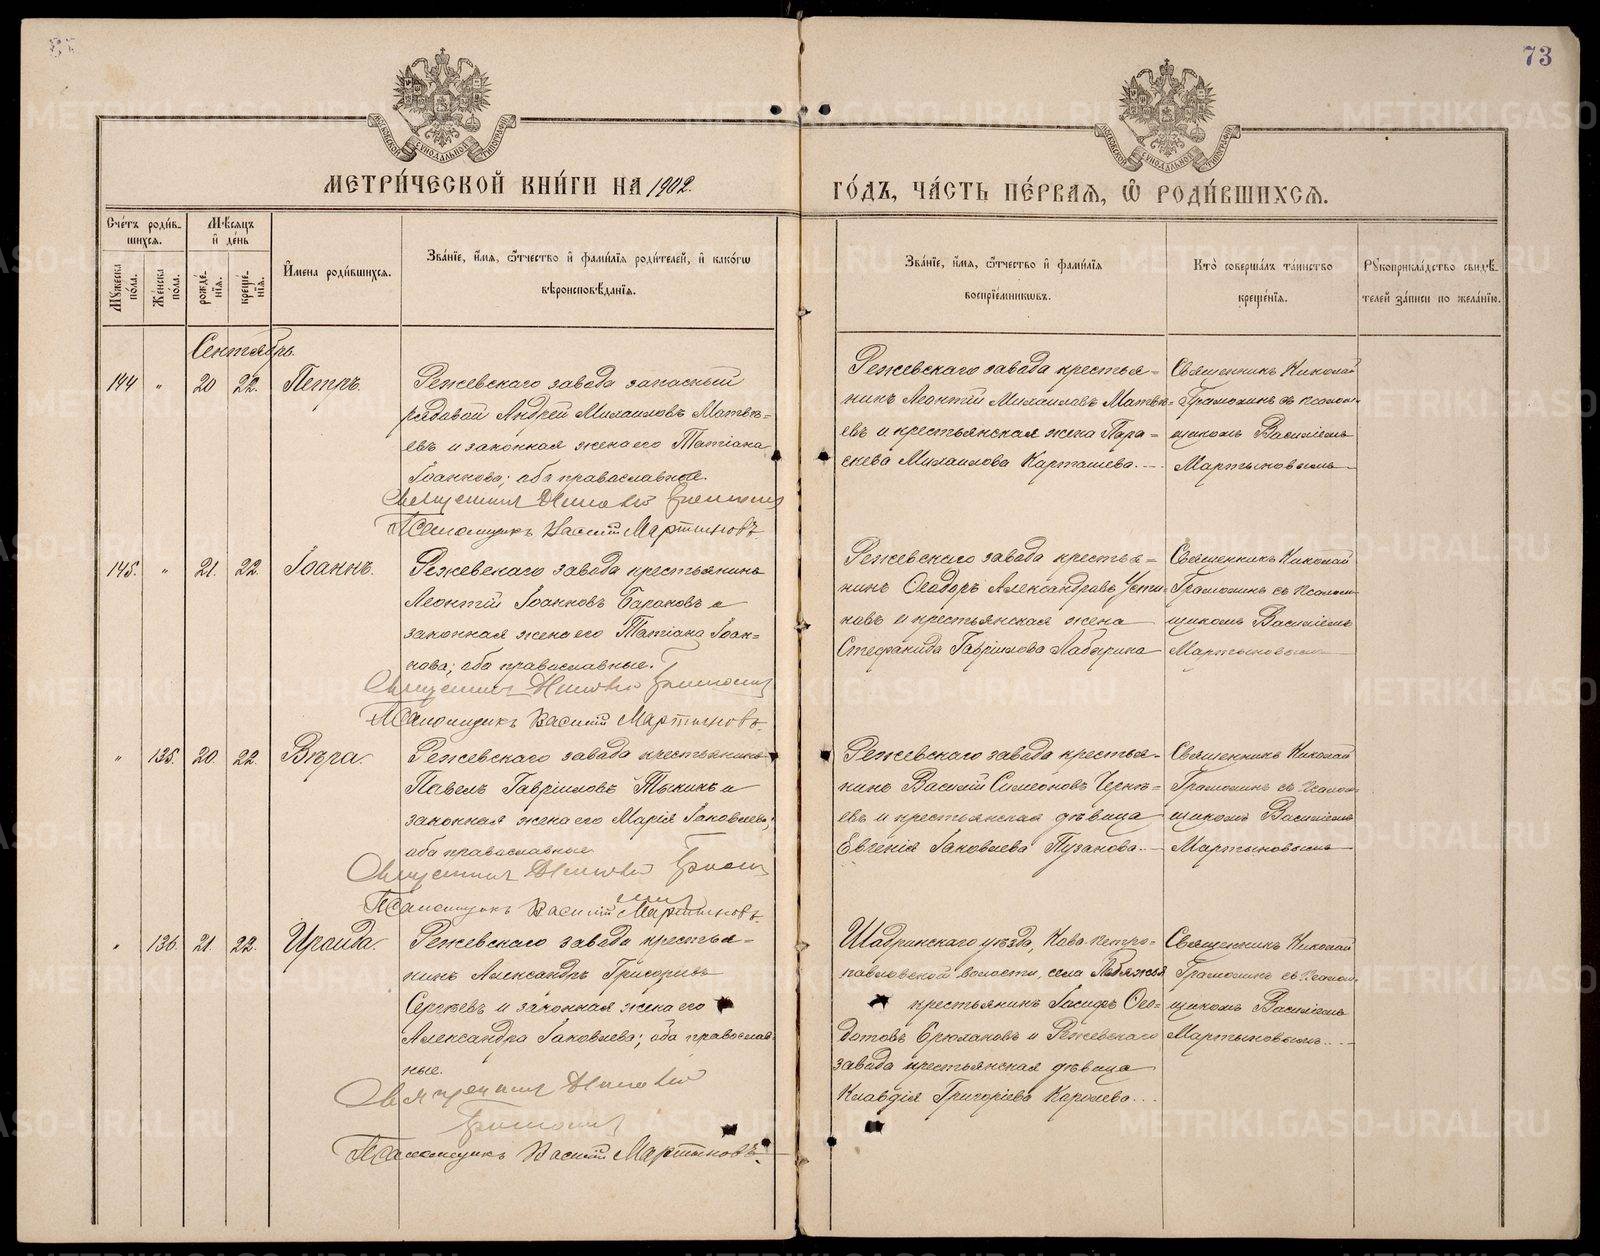 73
МОСКОВСКОЙ СѴНОДАЛЬНОЙ ТИПОГРАФІИ
МОСКОВСКОЙ СѴНОДАЛЬНОЙ ТИПОГРАФІИ
МЕТРИ́ЧЕСКОЙ КНИ́ГИ НА 1902
ГО́ДЪ, ЧА́СТЬ ПЕ́РВАѦ, Ѽ РОДИ́ВШИХСѦ.
Сче́тъ роди́в-
шихсѧ.
Мѣ́сѧцъ
и҆ де́нь
Мꙋ́жеска по́ла.
Же́нска по́ла.
рожде́-
нїѧ.
креще́-
нїѧ.
И҆мена̀ роди́вшихсѧ.
Зва́нїе, и҆́мѧ, ѻ҆́тчество и҆ фами́лїѧ роди́телей, и҆ како́гѡ
вѣроисповѣ́данїѧ.
Зва́нїе, и҆́мѧ, ѻ҆́тчество и҆ фами́лїѧ
воспрїе́мникѡвъ.
Кто̀ соверша́лъ та́инство
креще́нїѧ.
Рꙋкоприкла́дство свидѣ́-
телей за́писи по жела́нїю.
Сентябрь.
144 " 20 22. Петръ.
Режевскаго завода запасный
рядовой Андрей Михаиловъ Матвѣ-
евъ и законная жена его Татіана
Іоаннова; оба православные.
Священникъ Николай Грамолинъ
Псаломщикъ Василій Мартыновъ.
Режевскаго завода крестья-
нинъ Леонтій Михаиловъ Матвѣ-
евъ и крестьянская жена Пара-
скева Михаилова Карташева.
Священникъ Николай
Грамолинъ съ псалом-
щикомъ Василіемъ
Мартыновымъ
145. " 21. 22. Іоаннъ.
Режевскаго завода крестьянинъ
Леонтій Іоанновъ Бараковъ и
законная жена его Татіана Іоан-
нова; оба православные.
Священникъ Николай Грамолинъ
Псаломщикъ Василій Мартыновъ.
Режевскаго завода крестья-
нинъ Ѳеодоръ Александровъ Усти-
новъ и крестьянская жена
Стефанида Гавріилова Лабырина
Священникъ Николай
Грамолинъ съ псалом-
щикомъ Василіемъ
Мартыновымъ
" 135. 20. 22. Вѣра.
Режевскаго завода крестьянинъ
Павелъ Гавріиловъ Тыкинъ и
законная жена его Марія Іаковлева;
оба православные
Священникъ Николай Грамолинъ
Псаломщикъ Василій Мартыновъ.
Режевскаго завода крестья-
нинъ Василій Симеоновъ Чернѣ-
евъ и крестьянская дѣвица
Евгенія Іаковлева Пузанова.
Священникъ Николай
Грамолинъ съ псалом-
щикомъ Василіемъ
Мартыновымъ
" 136. 21. 22. Ираида.
Режевскаго завода крестья-
нинъ Александръ Григорьевъ
Сергѣевъ и законная жена его
Александра Іаковлева; оба православ-
ные.
Священникъ Николай
Грамолинъ
Псаломщикъ Василій Мартыновъ.
Шадринскаго уѣзда, Ново-Петро-
павловской волости, села
крестьянинъ Іосифъ Ѳео-
дотовъ и Режевскаго
завода крестьянская дѣвица
Клавдія Григоріева Королева
Священникъ Николай
Грамолинъ съ псалом-
щикомъ Василіемъ
Мартыновымъ
METRIKI.GASO-URAL.RU